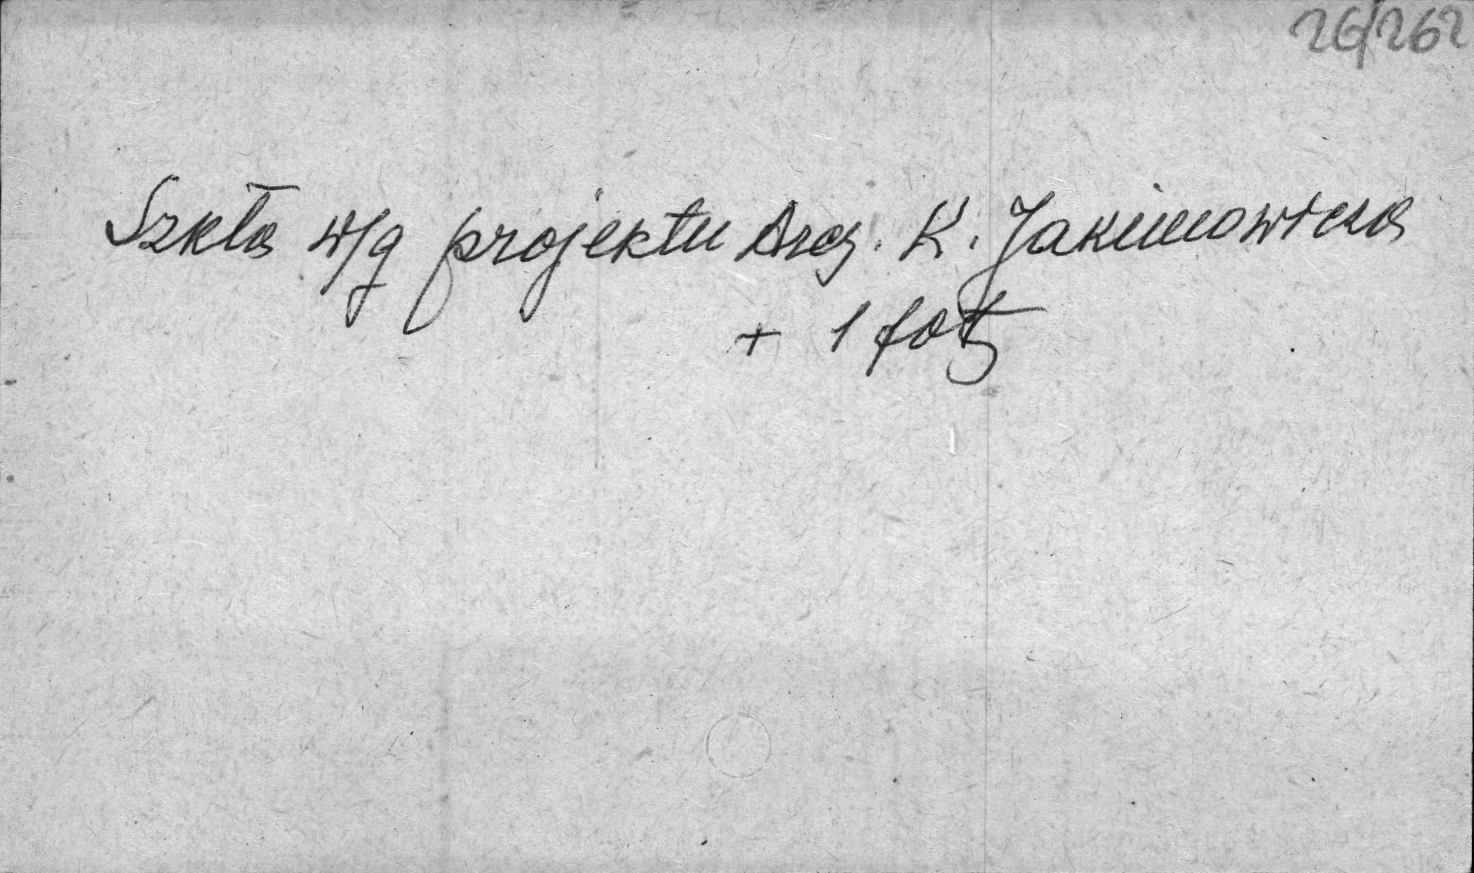 26/262
Szkła w/g projektu Arch. K. Jakimowicza
+ 1 fot